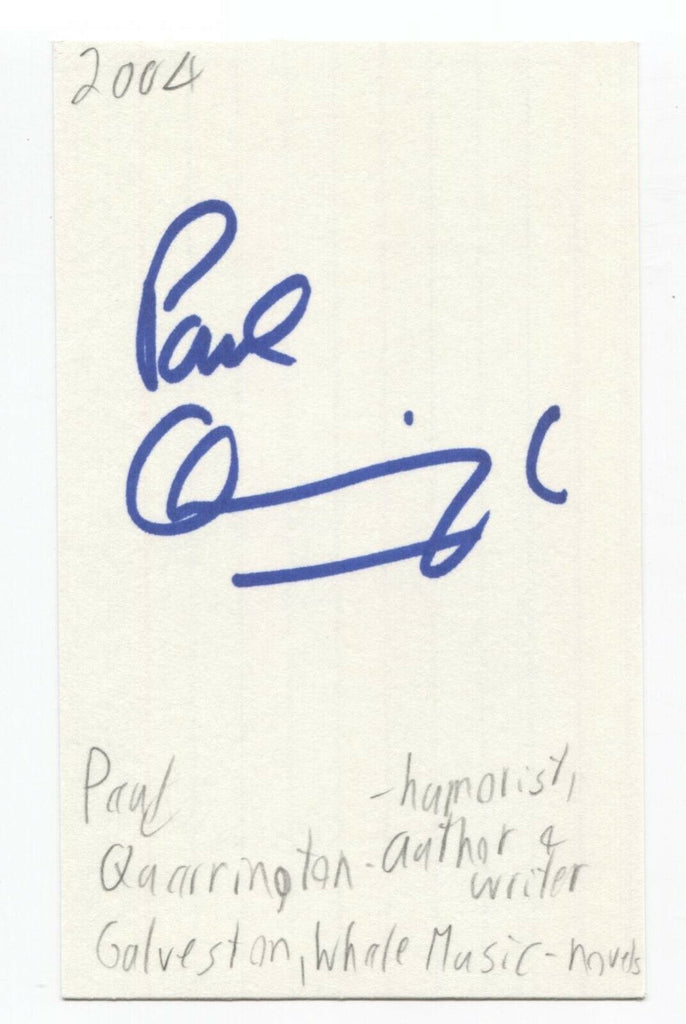 2004
Paul
Paul -humorist,
Quarrington-author &
writer
Galveston, Whale Music-novels